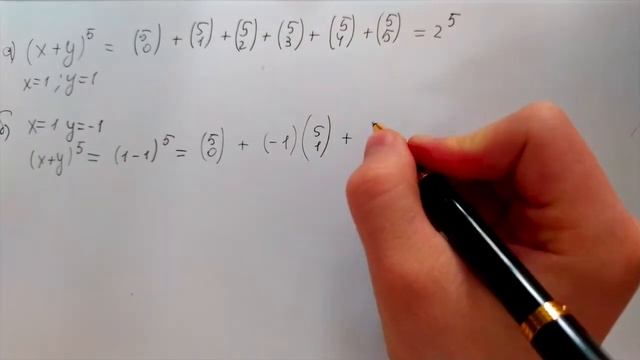 а) (x+y)^5 = (5 0) + (5 1) + (5 2) + (5 3) + (5 4) + (5 5) = 2^5
x=1; y=1
б) x=1 y=-1
(x+y)^5 = (1-1)^5 = (5 0) + (-1)(5 1) +